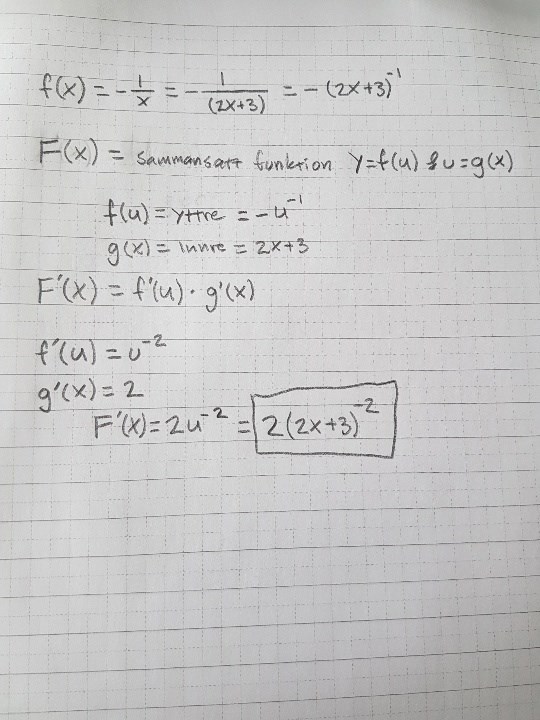 f(x) = -1/x = -1/(2x+3) = -(2x+3)⁻¹
F(x) = sammansatt funktion y=f(u) & u=g(x)
f(u) = yttre = -u⁻¹
g(x) = inre = 2x+3
F'(x) = f'(u) · g'(x)
f'(u) = u⁻²
g'(x) = 2
F'(x) = 2u⁻² = 2(2x+3)⁻²